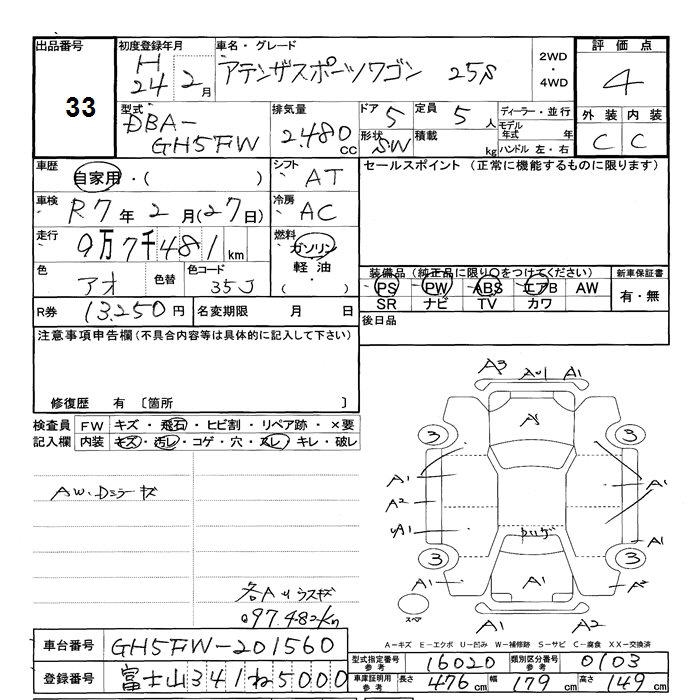 出品番号 初度登録年月 車名・グレード 評価点
33
H 24 2月 アテンザスポーツワゴン 25S 2WD・4WD 4
型式 排気量 ドア 5 定員 5人 ディーラー・並行 外装 内装
DBA-GH5FW 2.480cc 形状 SW 積載 kg モデル年式 年 ハンドル 左・右 C C
車歴 自家用・( ) シフト AT セールスポイント (正常に機能するものに限ります)
車検 R7年2月(27日) 冷房 AC
走行 9万7千481km 燃料 ガソリン 軽油・( )
色 アオ 色替 色コード 35J
装備品(純正品に限り○をつけてください) 新車保証書
PS PW ABS エアB AW 有・無
SR ナビ TV カワ
R券 13,250円 名変期限 月 日 後日品
注意事項申告欄(不具合内容等は具体的に記入して下さい)
修復歴 有 〔箇所 〕
検査員 FW キズ・飛石・ヒビ割・リペア跡・×要
記入欄 内装 キズ・汚レ・コゲ・穴・スレ・キレ・破レ
AW・Dミラーキズ
097.482km
A3 A1
3 3
A1 A1
A2
A1 A1
カリゲ
3 3
A1 A1 A2
スペア A1 A2
A-キズ E-エクボ U-凹み W-補修跡 S-サビ C-腐食 XX-交換済
車台番号 GH5FW-201560
登録番号 富士山341ね5000
型式指定番号 参考 16020 類別区分番号 参考 0103
車庫証明用 参考 長さ 476cm 幅 179cm 高さ 149cm